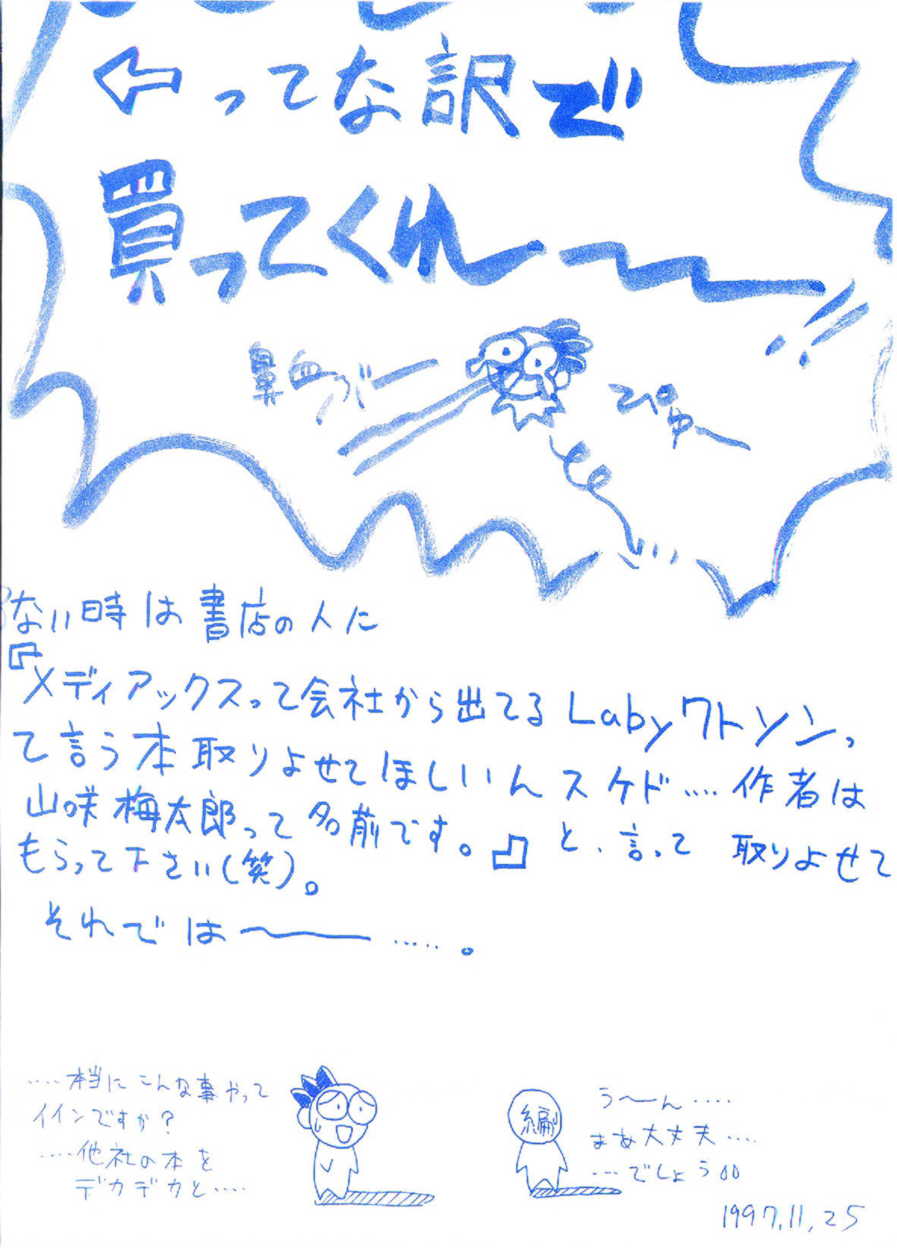 ⇦ってな訳で
買ってくれ〜〜!!
鼻血ブー
ぴゅ〜
ない時は書店の人に
『メディアックスって会社から出てるLabyワトソンっ
て言う本取りよせてほしいんスケド‥‥作者は
山咲梅太郎って名前です。』と、言って取りよせて
もらって下さい(笑)。
それでは〜‥‥‥。
‥‥本当にこんな事やって
イインですか?
‥‥他社の本を
デカデカと‥‥
編
う〜ん‥‥
まあ大丈夫‥‥
‥‥でしょう
1997,11,25